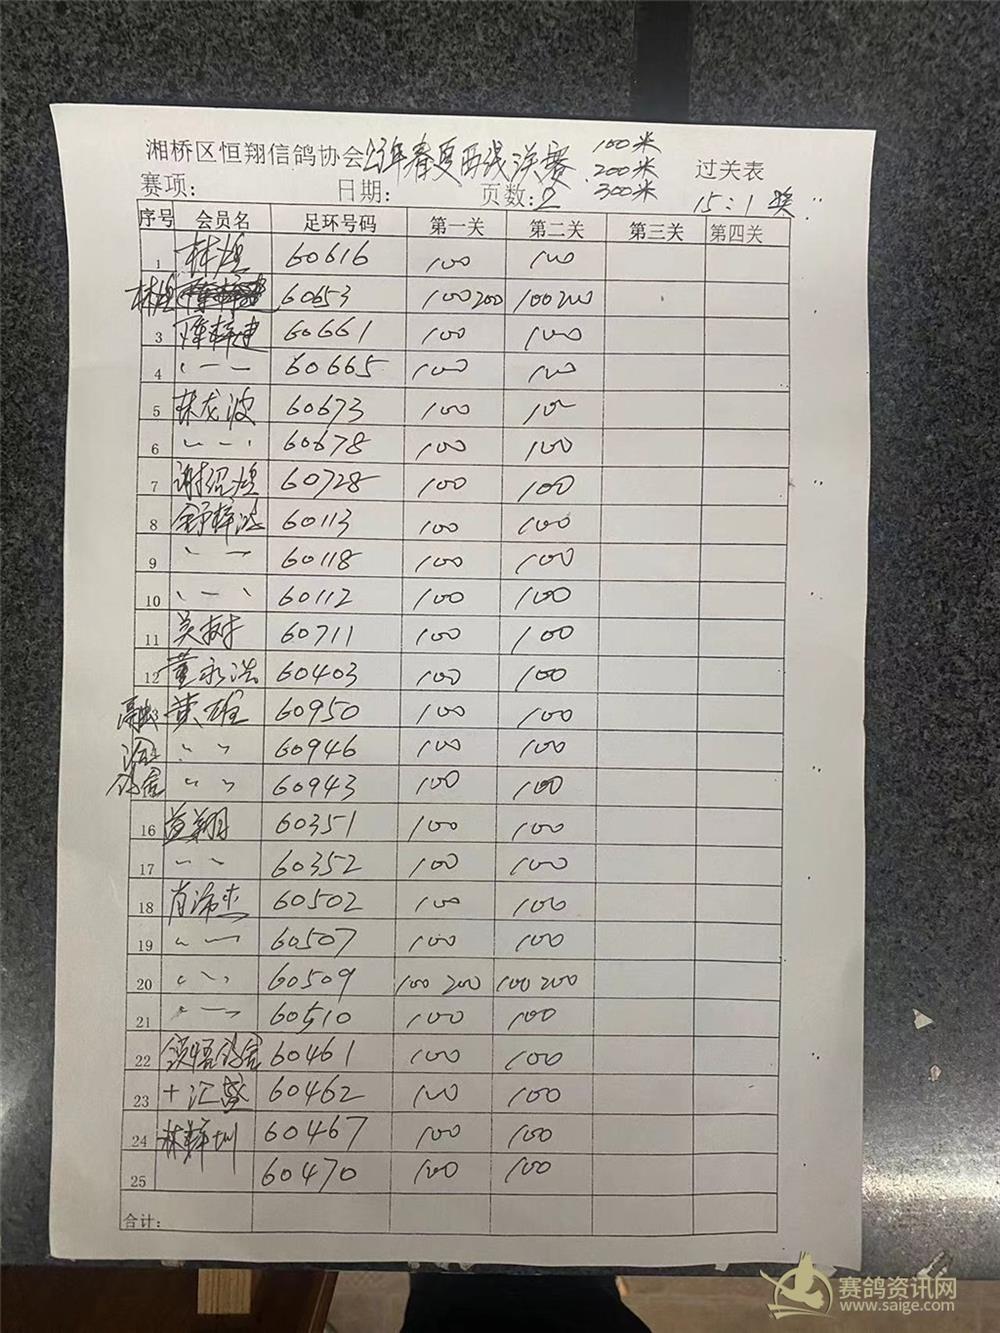 湘桥区恒翔信鸽协会 23年春夏西线决赛 100米 过关表
200米
赛项: 日期: 页数:2 300米 15:1 奖
序号 会员名 足环号码 第一关 第二关 第三关 第四关
1 林煌 60616 100 100
林煌 60653 100 200 100 200
3 陈梓建 60661 100 100
4 〃 60665 100 100
5 林龙波 60673 100 100
6 〃 60678 100 100
7 谢绍煌 60728 100 100
8 舒梓鸿 60113 100 100
9 〃 60118 100 100
10 〃 60112 100 100
11 吴树 60711 100 100
12 董永浩 60403 100 100
13 黄雄 60950 100 100
〃 60946 100 100
鸽舍 〃 60943 100 100
16 翔 60351 100 100
17 〃 60352 100 100
18 肖沛杰 60502 100 100
19 〃 60507 100 100
20 〃 60509 100 200 100 200
21 〃 60510 100 100
22 鸽舍 60461 100 100
23 + 汇 60462 100 100
24 林梓圳 60467 100 100
25 60470 100 100
合计:
赛鸽资讯网
www.saige.com